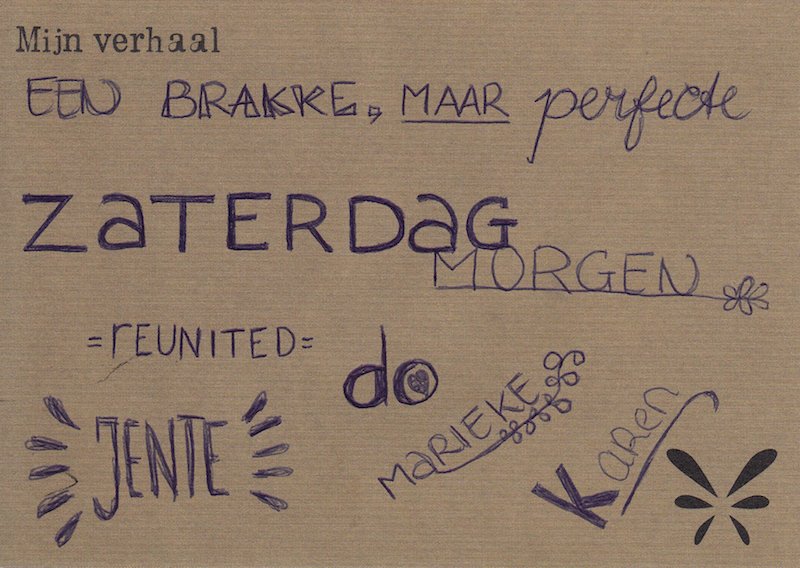 Mijn verhaal
EEN BRAKKE, MAAR perfecte
ZaTERDaG
MORGEN
=rEUNITED=
do
JENTE
MaRIEKE
Karen